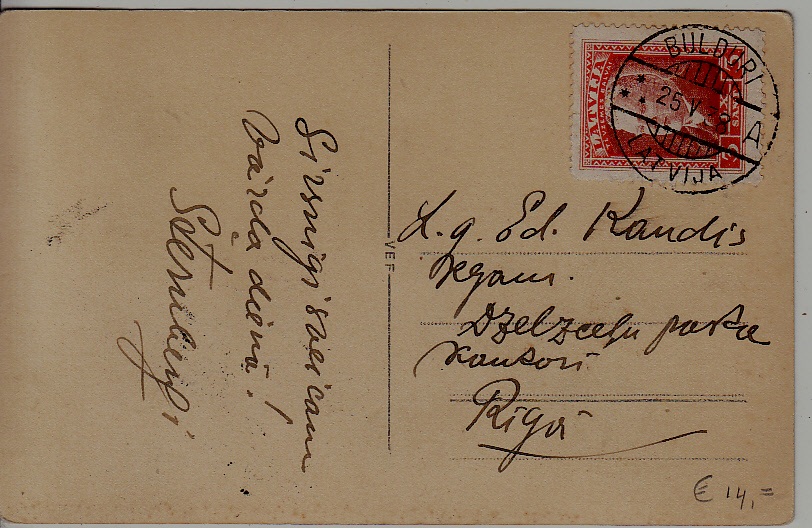 Sirsnīgi sveicam
vārda dienā!
Šternbergi
VEF
LATVIJA
3
SANT.
BULDURI
25 V 38
A
LATVIJA
L. g. Ed. Kandis
kgam.
Dzelzceļu pasta
kantorī
Rīgā
€ 14,=